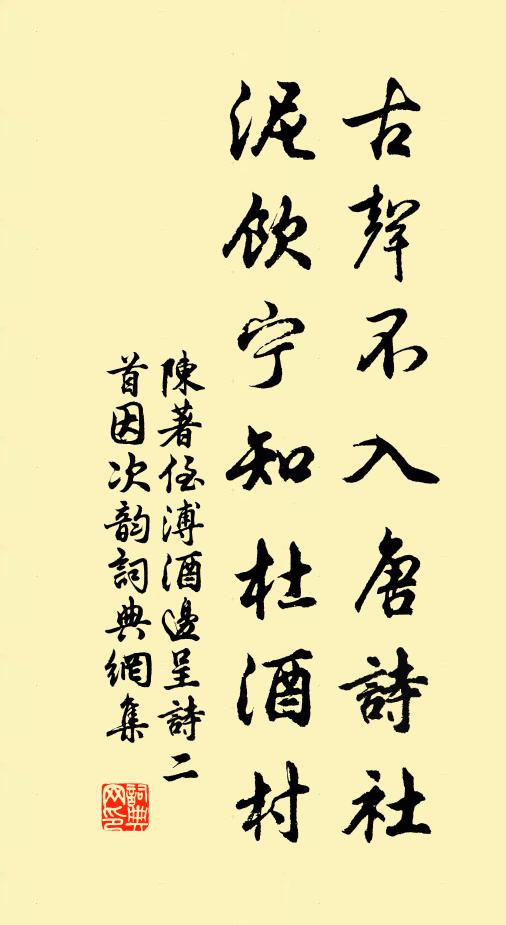 古聲不入唐詩社
泥飲宁知杜酒村
陳著侄溥酒邊呈詩二
首因次韵詞典網集
詞典
网印